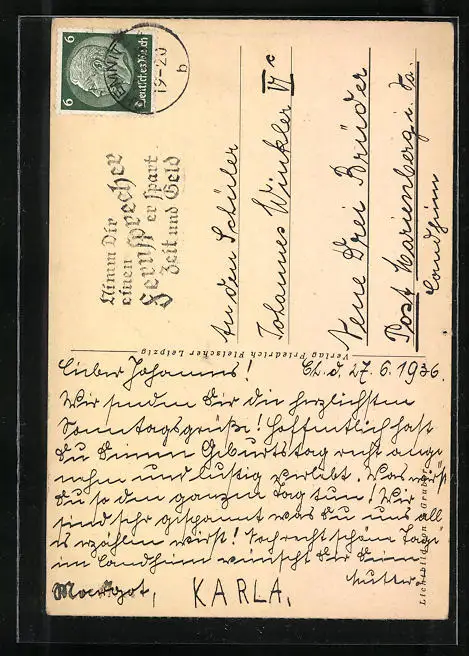 6
6
Deutsches Reich
CHEMNITZ
19-20
b
Nimm Dir
einen
Fernsprecher
er spart
Zeit und Geld
An den Schüler
Johannes Winkler VI c
Neue Drei Brüder
Post Marienberg i. Sa.
Landheim
Verlag Friedrich Fleischer Leipzig
Lichtbild
Lieber Johannes! Ch. d. 27. 6. 1936.
Wir senden Dir die herzlichsten
Sonntagsgrüße! Hoffentlich hast
Du Deinen Geburtstag recht ange-
nehm und lustig verlebt. Was wirst
Du so den ganzen Tag tun! Wir
sind sehr gespannt was Du uns all
es erzählen wirst! Noch recht schöne Tage
im Landheim wünscht Dir Deine
Mutter.
Margot, KARLA.